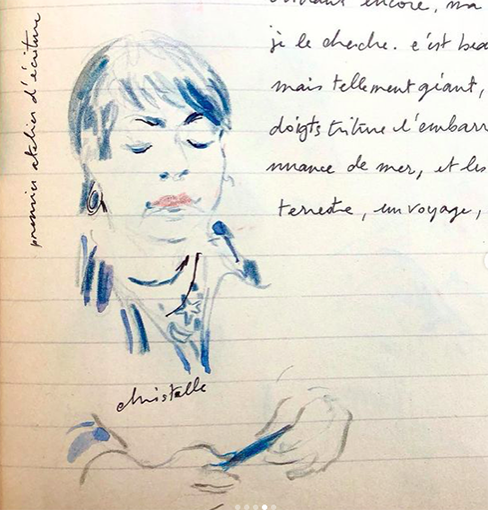 premier atelier d'écriture
encore, ma
je le cherche. c'est
mais tellement géant,
doigts triture l'embarr
nuance de mer, et les
terrestre, un voyage,
christelle